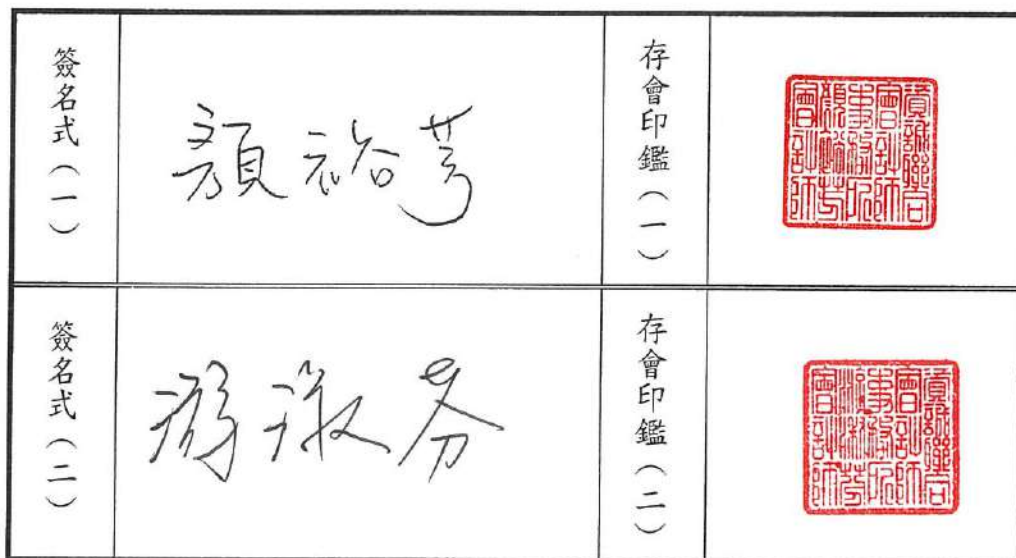 簽名式(一)
顏裕芳
存會印鑑(一)
資誠聯合
會計師
事務所
顏裕芳
會計師
簽名式(二)
游淑芬
存會印鑑(二)
資誠聯合
會計師
事務所
游淑芬
會計師